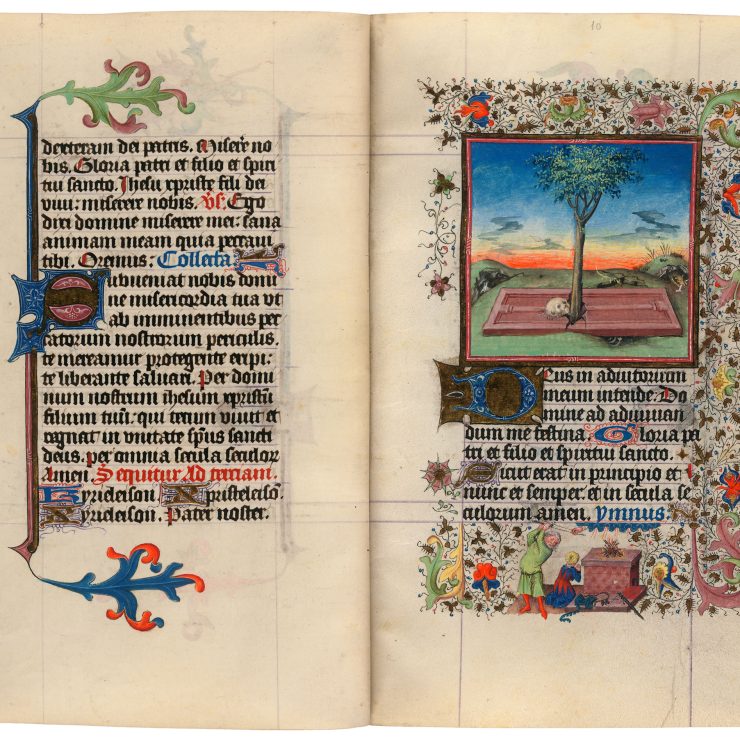 dexteram dei patris. Misere no
bis. Gloria patri et filio et spiri
tui sancto. Ihesu xpriste fili dei
viui: miserere nobis. Vs. Ego
dixi domine miserere mei: sana
animam meam quia peccaui
tibi. Oremus: Collecta
Subueniat nobis domi
ne misericordia tua vt
ab imminentibus pec
catorum nostrorum periculis.
te mereamur protegente eripi:
te liberante saluari. Per domi
num nostrum ihesum xpristum
filium tuum: qui tecum viuit et
regnat in vnitate spus sancti
deus. per omnia secula seculor
Amen Sequitur Ad terciam.
Kyrieleison Xpisteleison.
Kyrieleison. Pater noster.
10
Deus in adiutorium
meum intende. Do
mine ad adiuuan
dum me festina. Gloria pa
tri et filio et spiritui sancto.
Sicut erat in principio et
nunc et semper. et in secula se
culorum amen. Ymnus